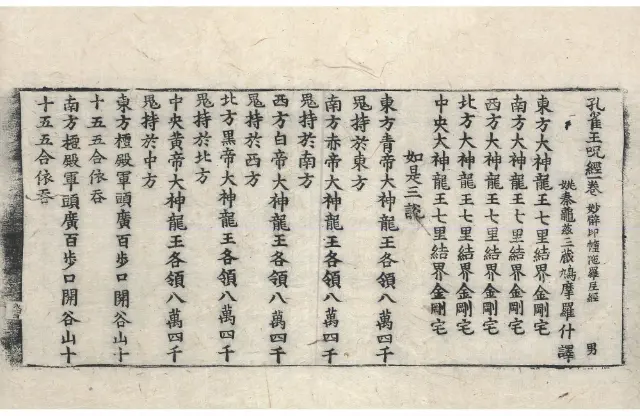 孔雀王呪經一卷 妙辟印幢陀羅尼經 男
姚秦龜茲三藏鳩摩羅什譯
東方大神龍王七里結界金剛宅
南方大神龍王七里結界金剛宅
西方大神龍王七里結界金剛宅
北方大神龍王七里結界金剛宅
中央大神龍王七里結界金剛宅
如是三說
東方青帝大神龍王各領八萬四千
鬼持於東方
南方赤帝大神龍王各領八萬四千
鬼持於南方
西方白帝大神龍王各領八萬四千
鬼持於西方
北方黑帝大神龍王各領八萬四千
鬼持於北方
中央黃帝大神龍王各領八萬四千
鬼持於中方
東方檀殿軍頭廣百步口開谷山十
十五五合依吞
南方檀殿軍頭廣百步口開谷山十
十五五合依吞